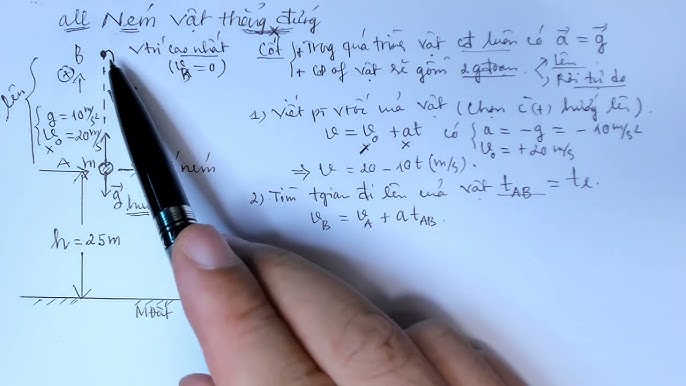 all Ném vật thẳng đứng
B vtrí cao nhất
(v_B = 0)
Cốt + Trong quá trình vật cđ luôn có a⃗ = g⃗
+ cđ of vật sẽ gồm 2 gđoạn Lên
Rơi tự do
(+)
lên
g = 10 m/s²
v₀ = 20 m/s
1) Viết pt vtốc của vật (chọn c(+) hướng lên).
v = v₀ + at có a = -g = -10 m/s²
v₀ = +20 m/s
⇒ v = 20 - 10t (m/s).
A m ném
g⃗
2) Tìm tgian đi lên của vật t_AB = t_l.
v_B = v_A + a t_AB.
h = 25m
MĐất